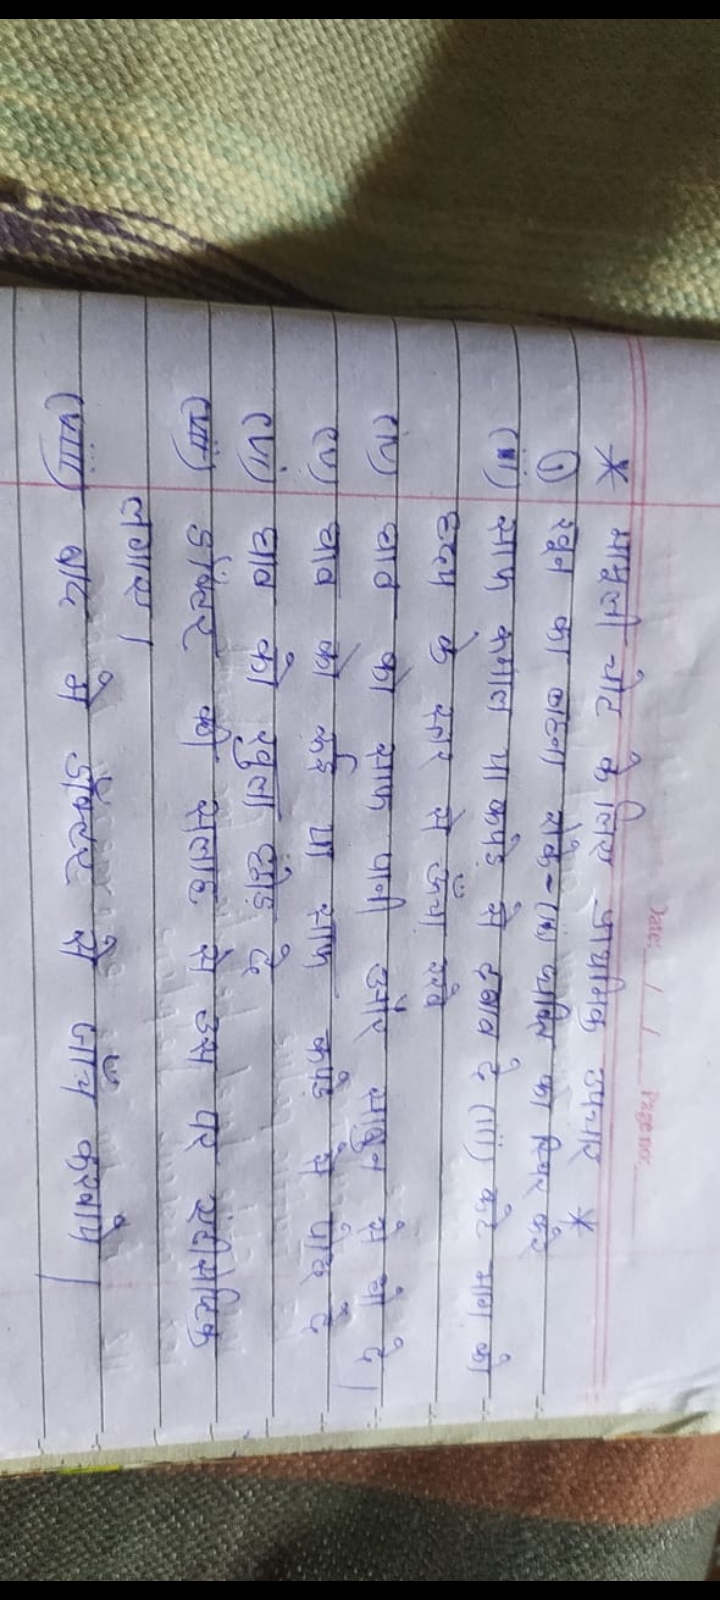 Date: / / Page no:
* मामुली चोट के लिए प्राथमिक उपचार *
① खून का बहना रोके - (ii) पीड़ित को स्थिर करे
(ii) साफ रूमाल या कपड़े से दबाव दे (iii) कटे भाग को
हृदय के स्तर से ऊँचा रखे
(iv) घाव को साफ पानी और साबुन से धो दे।
(v) घाव को रूई या साफ कपड़े से पोछ दे
(vi) घाव को खुला छोड़ दे
(vii) डॉक्टर की सलाह से उस पर एंटीसेप्टिक
लगाए।
(viii) बाद मे डॉक्टर से जाँच करवाये।